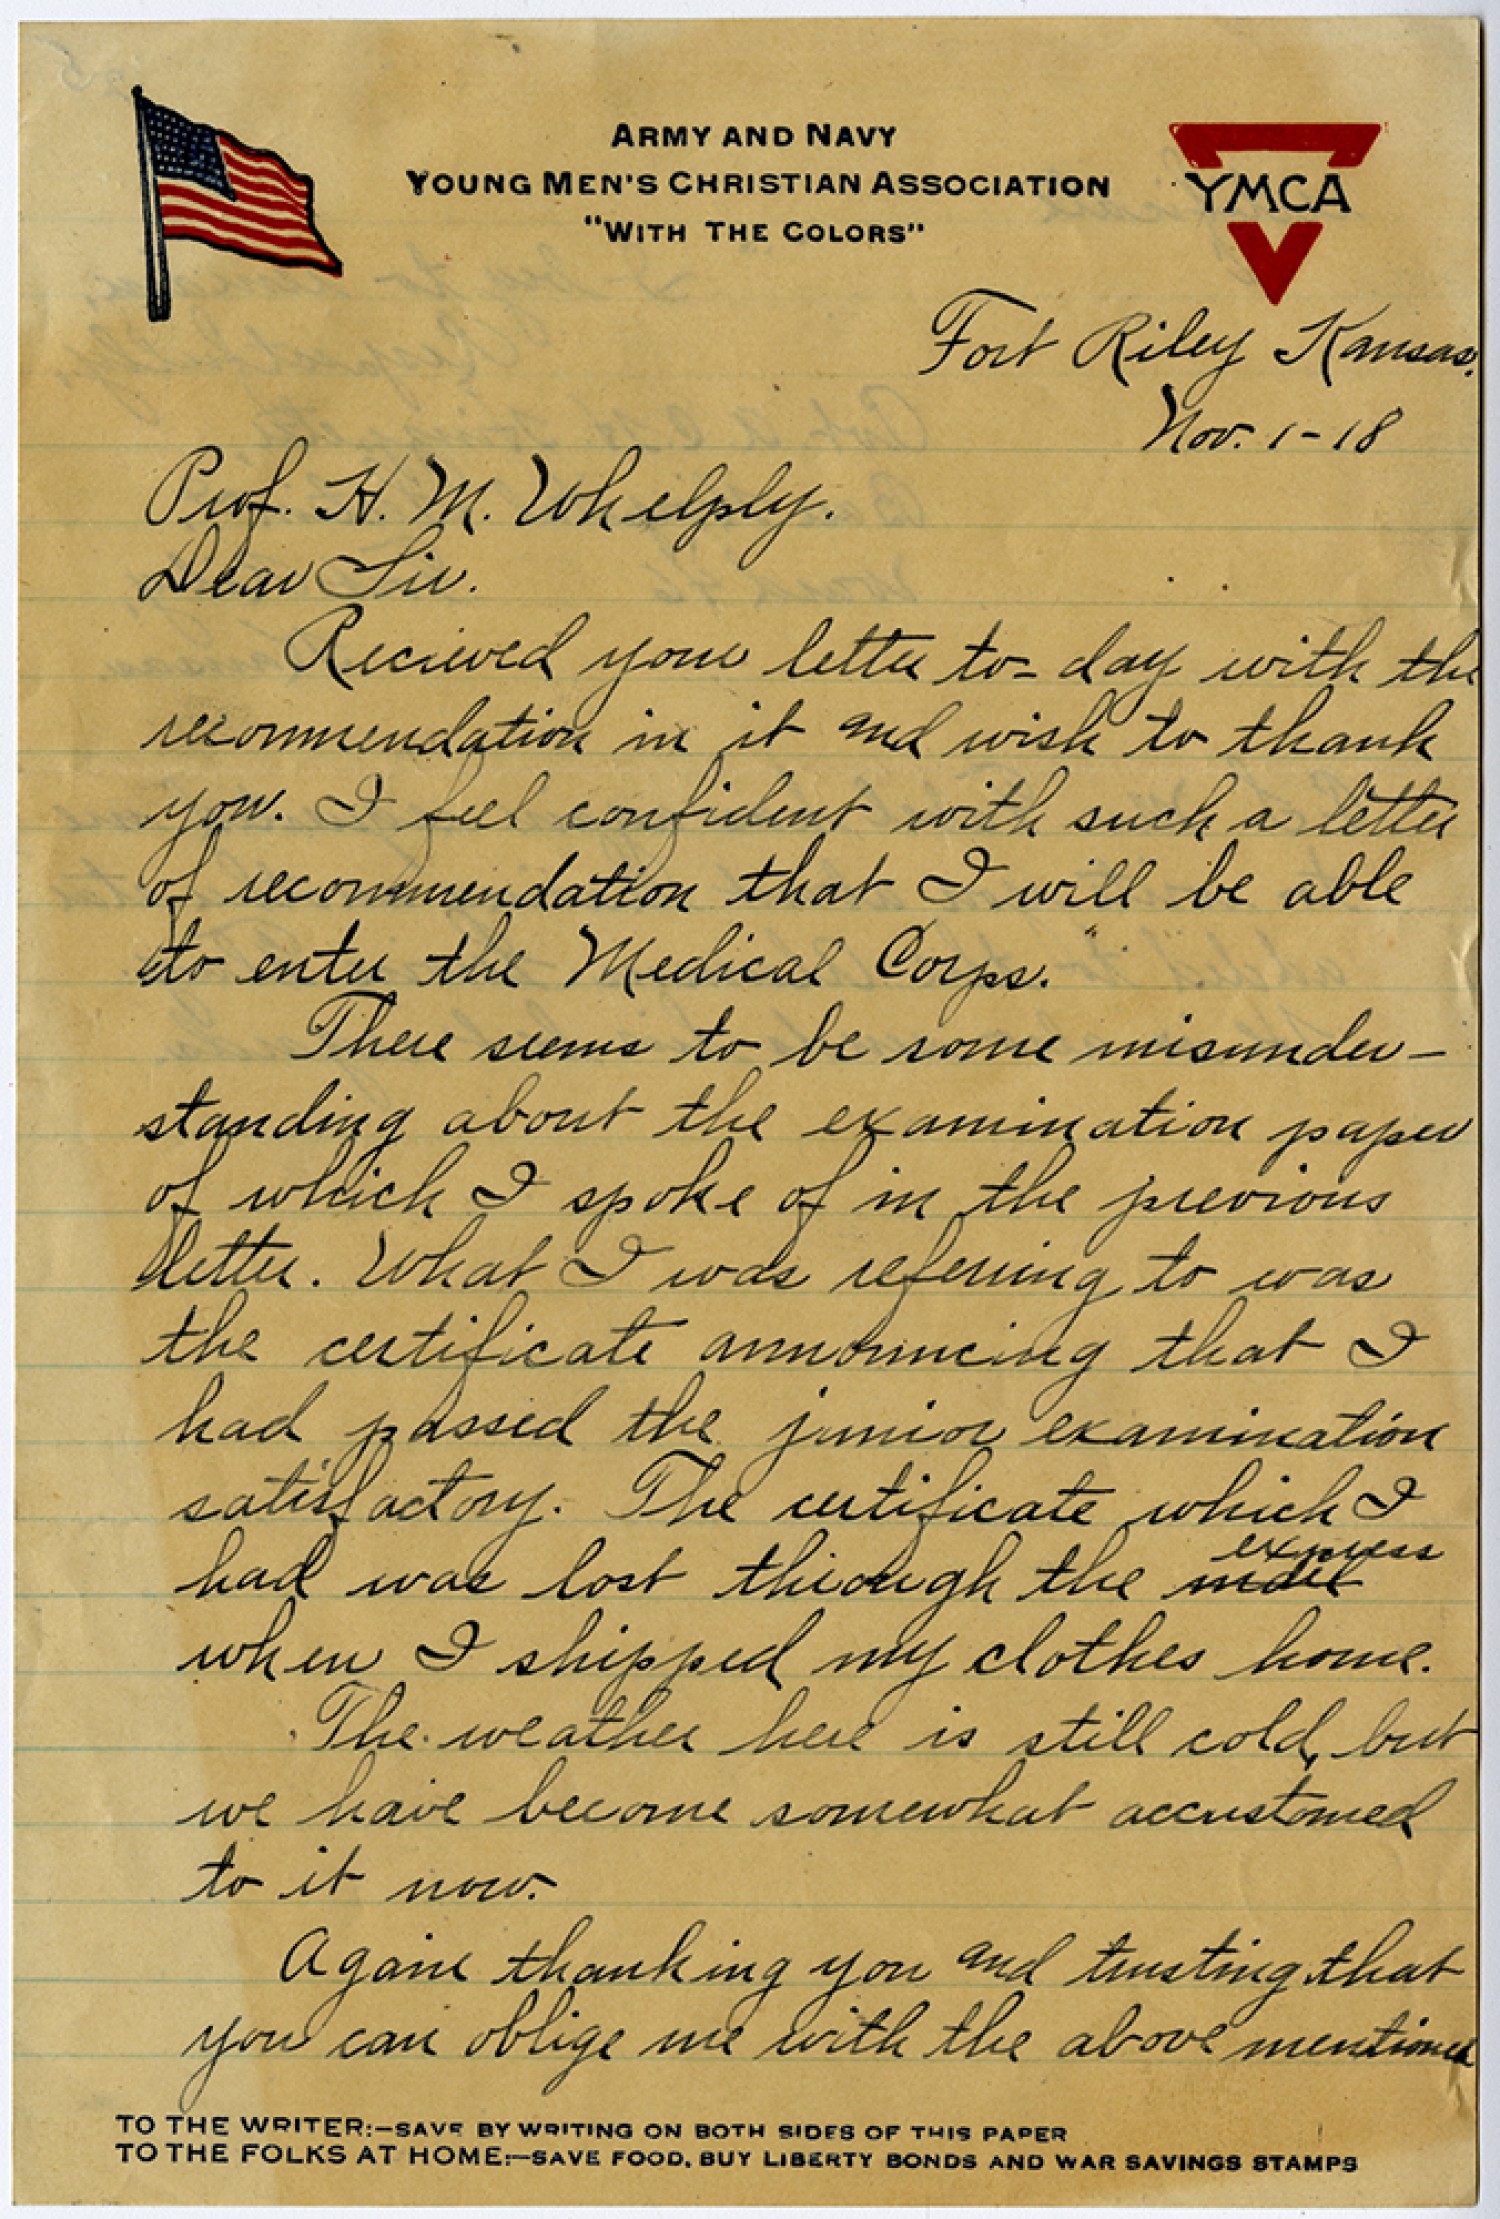 ARMY AND NAVY
YOUNG MEN'S CHRISTIAN ASSOCIATION
"WITH THE COLORS"
YMCA
Fort Riley Kansas.
Nov. 1-18
Prof. H. M. Whelply.
Dear Sir.
Recieved your letter to-day with the
recommendation in it and wish to thank
you. I feel confident with such a letter
of recommendation that I will be able
to enter the Medical Corps.
There seems to be some misunder-
standing about the examination paper
of which I spoke of in the previous
letter. What I was referring to was
the certificate announcing that I
had passed the junior examination
satisfactory. The certificate which I
express
had was lost through the mail
when I shipped my clothes home.
The weather here is still cold, but
we have become somewhat accustomed
to it now.
Again thanking you and trusting that
you can oblige me with the above mentioned
TO THE WRITER:—SAVE BY WRITING ON BOTH SIDES OF THIS PAPER
TO THE FOLKS AT HOME:—SAVE FOOD, BUY LIBERTY BONDS AND WAR SAVINGS STAMPS